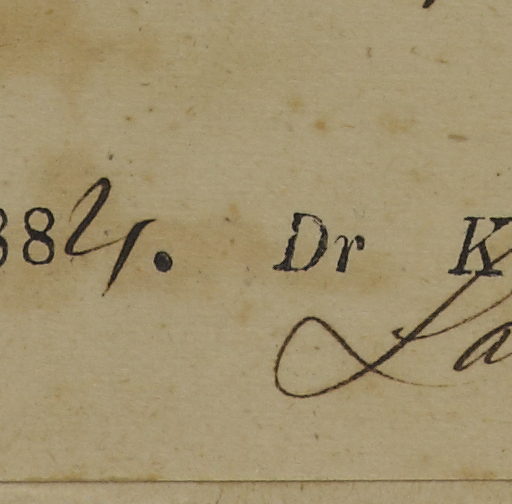 884. Dr K
La